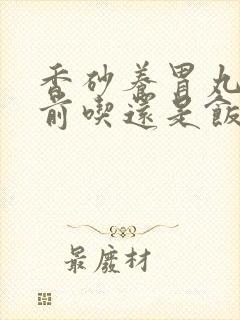 香砂養胃丸
前喫還是飯
最廢材